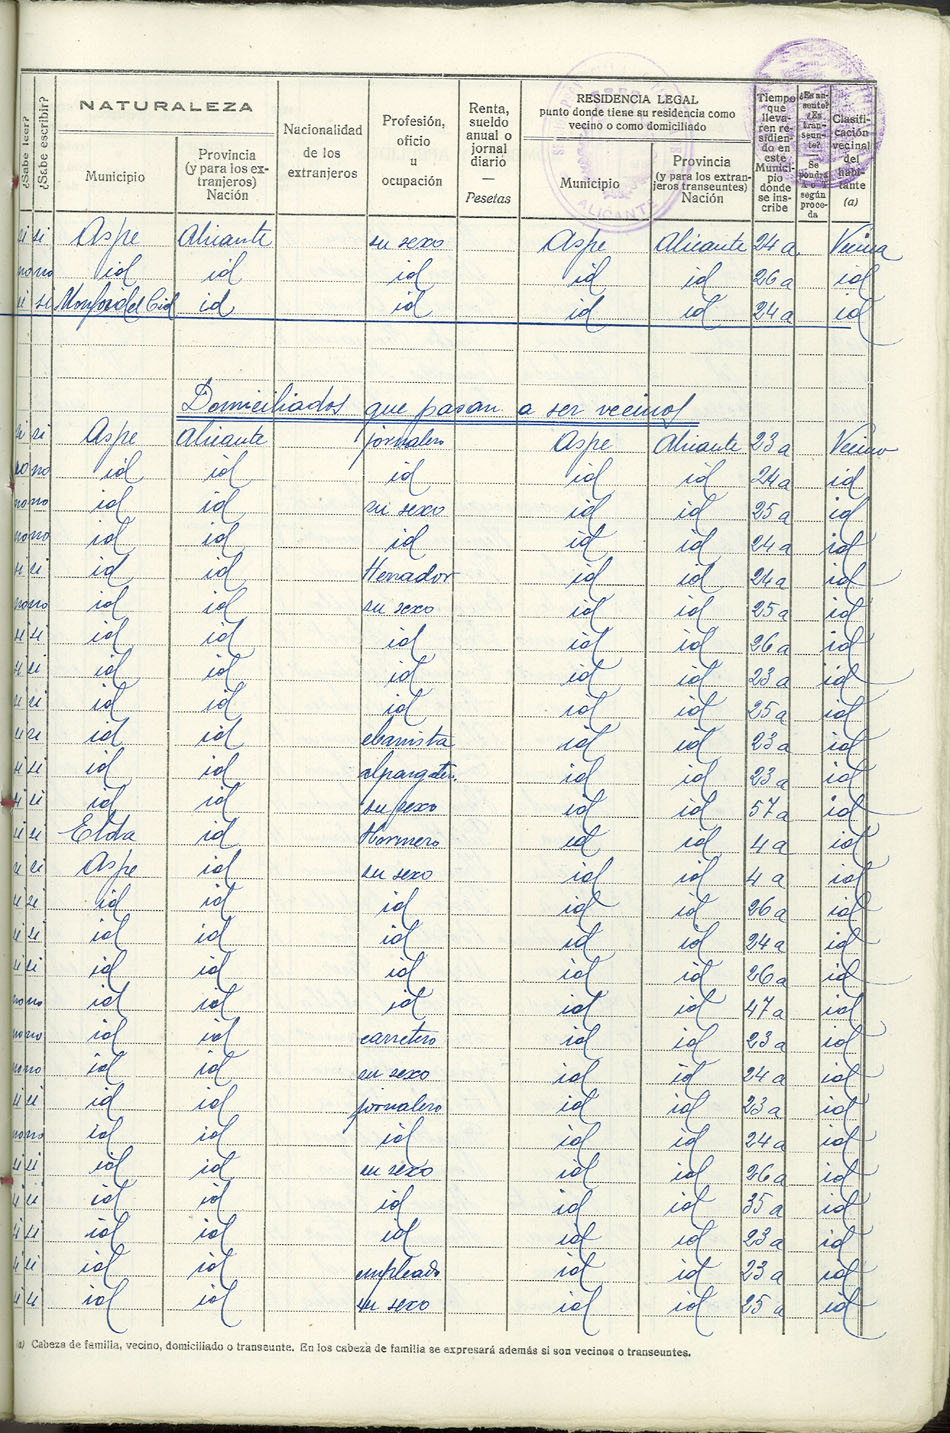 ¿Sabe leer?
¿Sabe escribir?
NATURALEZA
Municipio
Provincia (y para los ex-tranjeros) Nación
Nacionalidad de los extranjeros
Profesión, oficio u ocupación
Renta, sueldo anual o jornal diario — Pesetas
RESIDENCIA LEGAL
punto donde tiene su residencia como vecino o como domiciliado
Municipio
Provincia (y para los extran-jeros transeuntes) Nación
Tiempo que lleva-ren re-sidien-do en este Munici-pio donde se ins-cribe
¿Es au-sente? ¿Es tran-seun-te? — Se pondrá A o T según proce-da
Clasifi-cación vecinal del habi-tante (a)
ALICANTE
si si Aspe Alicante su sexo Aspe Alicante 24 a Vecina
no no id id id id id 26 a id
si si Monforte del Cid id id id id 24 a id
Domiciliados que pasan a ser vecinos
si si Aspe Alicante jornalero Aspe Alicante 23 a Vecino
no no id id id id id 24 a id
no no id id su sexo id id 25 a id
no no id id id id id 24 a id
si si id id Herrador id id 24 a id
no no id id su sexo id id 25 a id
si si id id id id id 26 a id
si si id id id id id 23 a id
si si id id id id id 25 a id
si si id id ebanista id id 23 a id
si si id id alpargate. id id 23 a id
si si id id su sexo id id 57 a id
si si Elda id Hornero id id 4 a id
si si Aspe id su sexo id id 4 a id
si si id id id id id 26 a id
si si id id id id id 24 a id
si si id id id id id 26 a id
no no id id id id id 47 a id
no no id id carretero id id 23 a id
no no id id su sexo id id 24 a id
si si id id jornalero id id 23 a id
no no id id id id id 24 a id
si si id id su sexo id id 26 a id
si si id id id id id 35 a id
si si id id id id id 23 a id
si si id id empleado id id 23 a id
si si id id su sexo id id 25 a id
(a) Cabeza de familia, vecino, domiciliado o transeunte. En los cabeza de familia se expresará además si son vecinos o transeuntes.